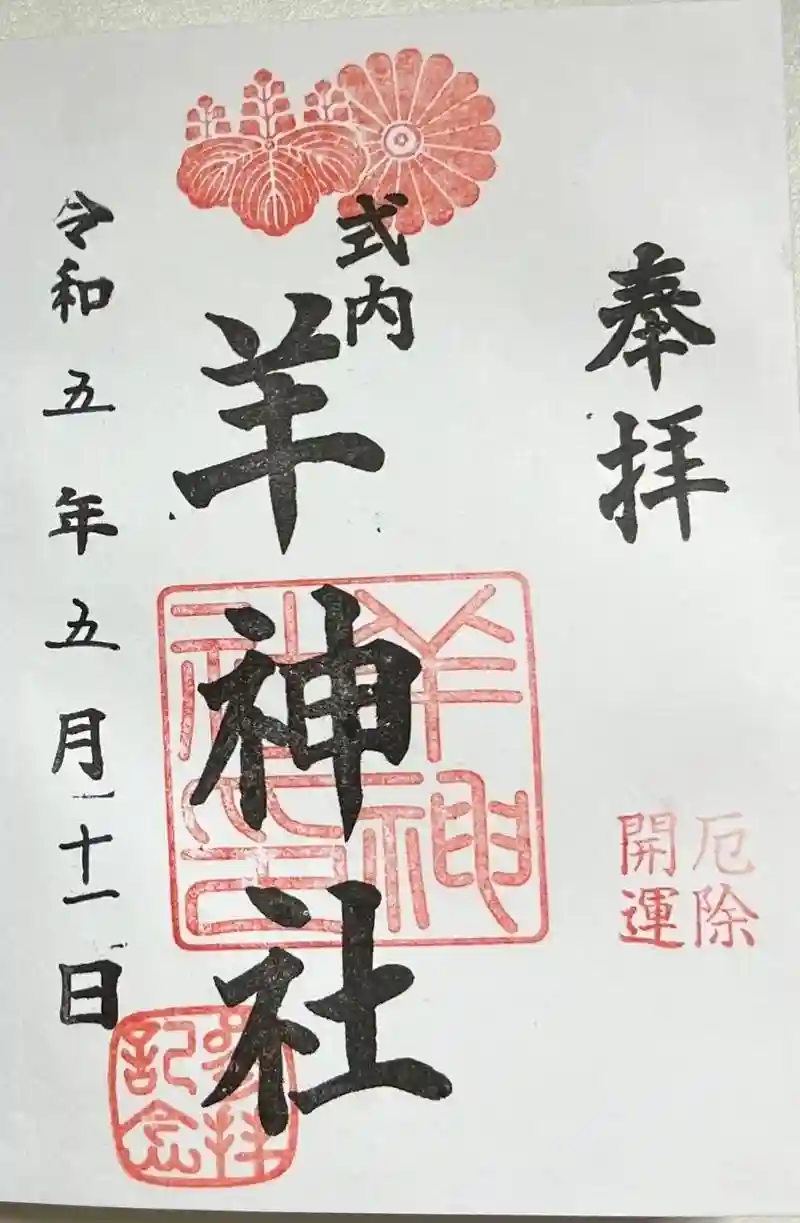 奉拝
厄除
開運
式内
羊神社
羊神社之印
参拝
記念
令和五年五月十一日